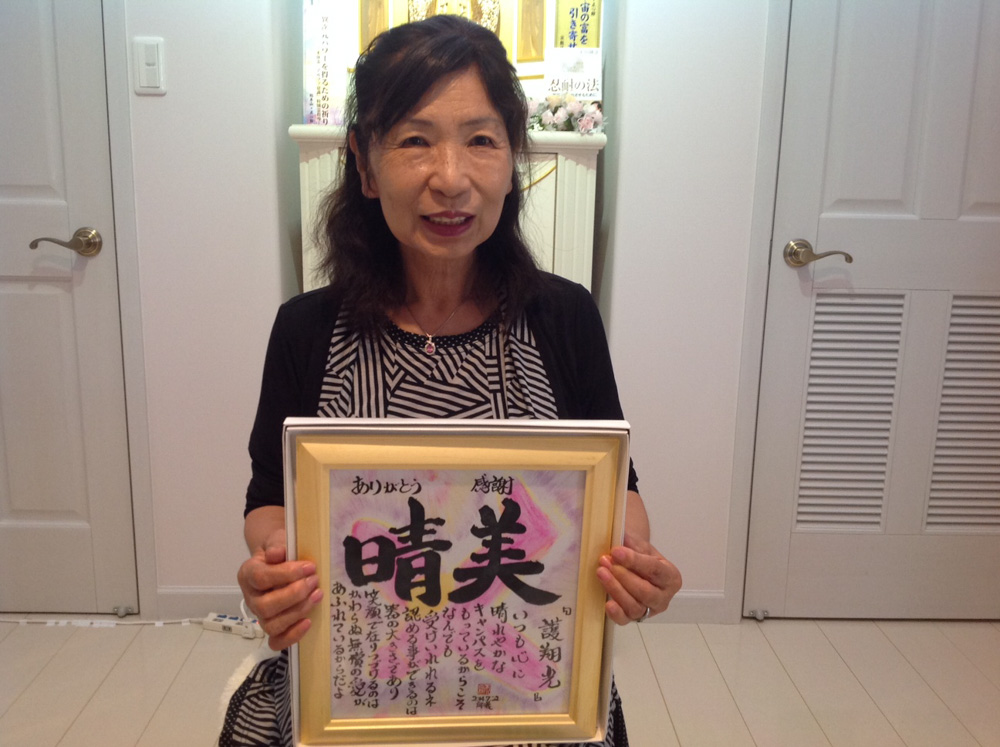 宙の富を
引き寄せ
忍耐の法
パワーを得るための祈り
ありがとう 感謝
晴美
護翔光
いつも心に
晴れやかな
キャンパスを
もっているからこそ
なんでも
受けいれれる
認める事ができるのは
器の大きさであり
笑顔で在りつづけるのは
かわらぬ無償の愛が
あふれているからだよ